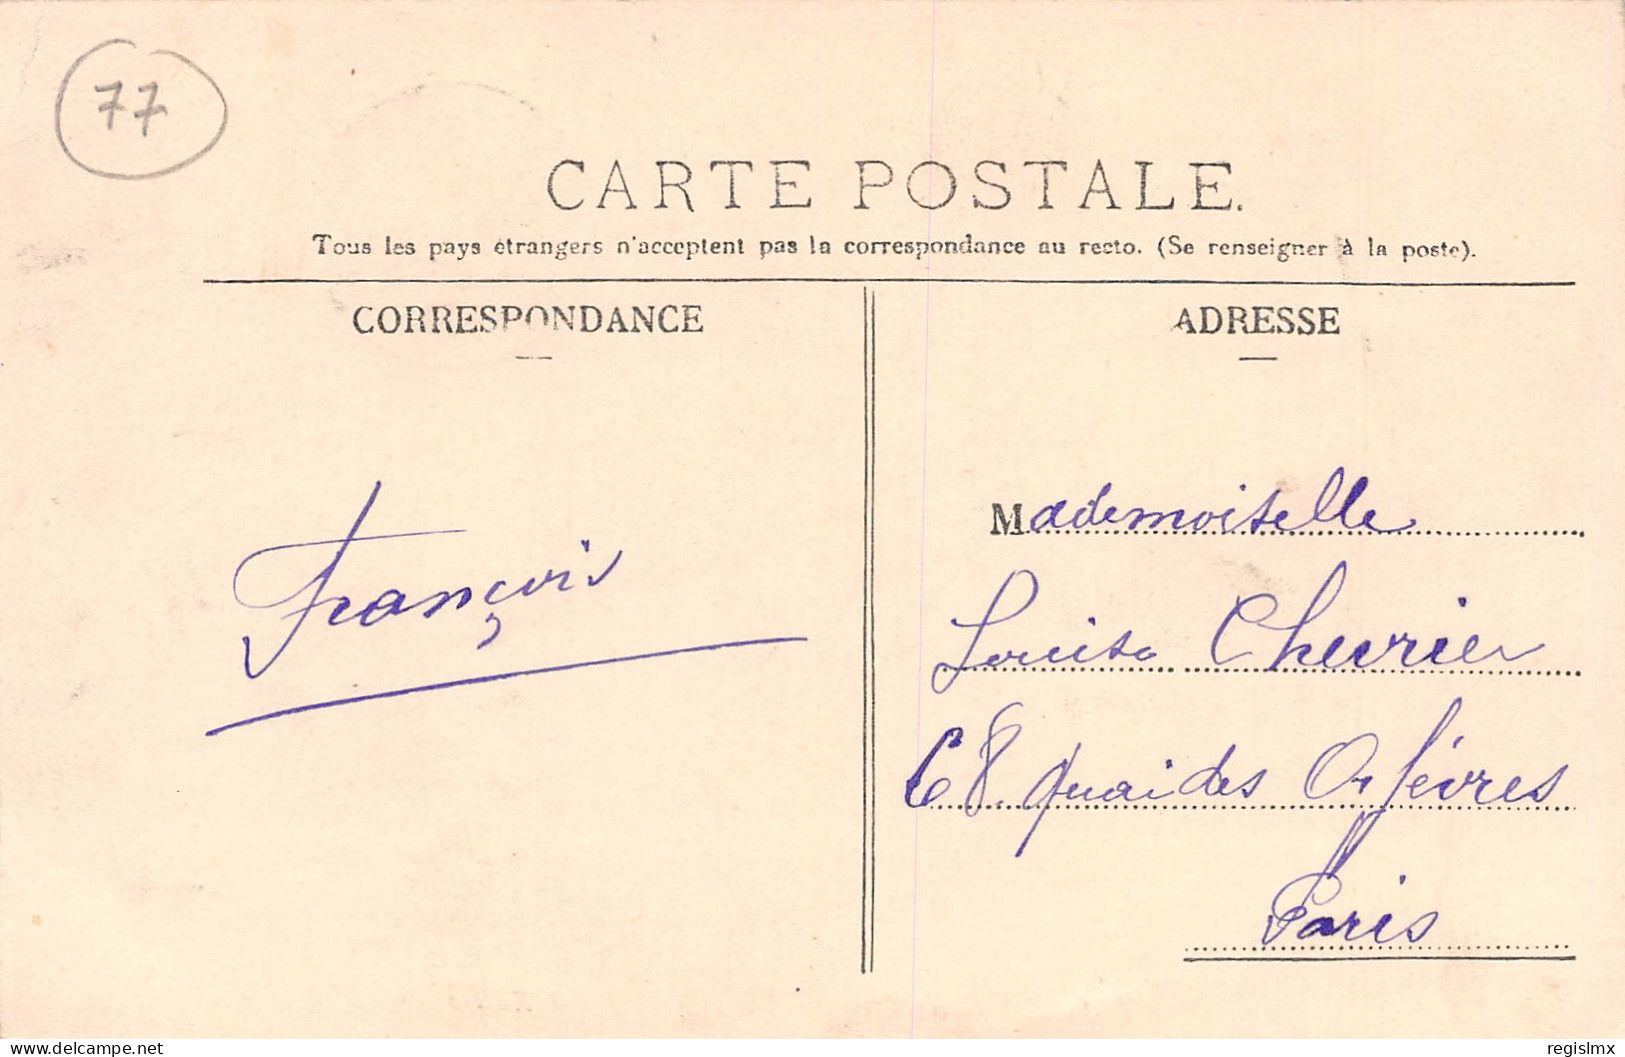 77
CARTE POSTALE.
Tous les pays étrangers n'acceptent pas la correspondance au recto. (Se renseigner à la poste).
CORRESPONDANCE
ADRESSE
François
Mademoiselle
Louise Chevrier
68 quai des Orfèvres
Paris
www.delcampe.net
regislmx